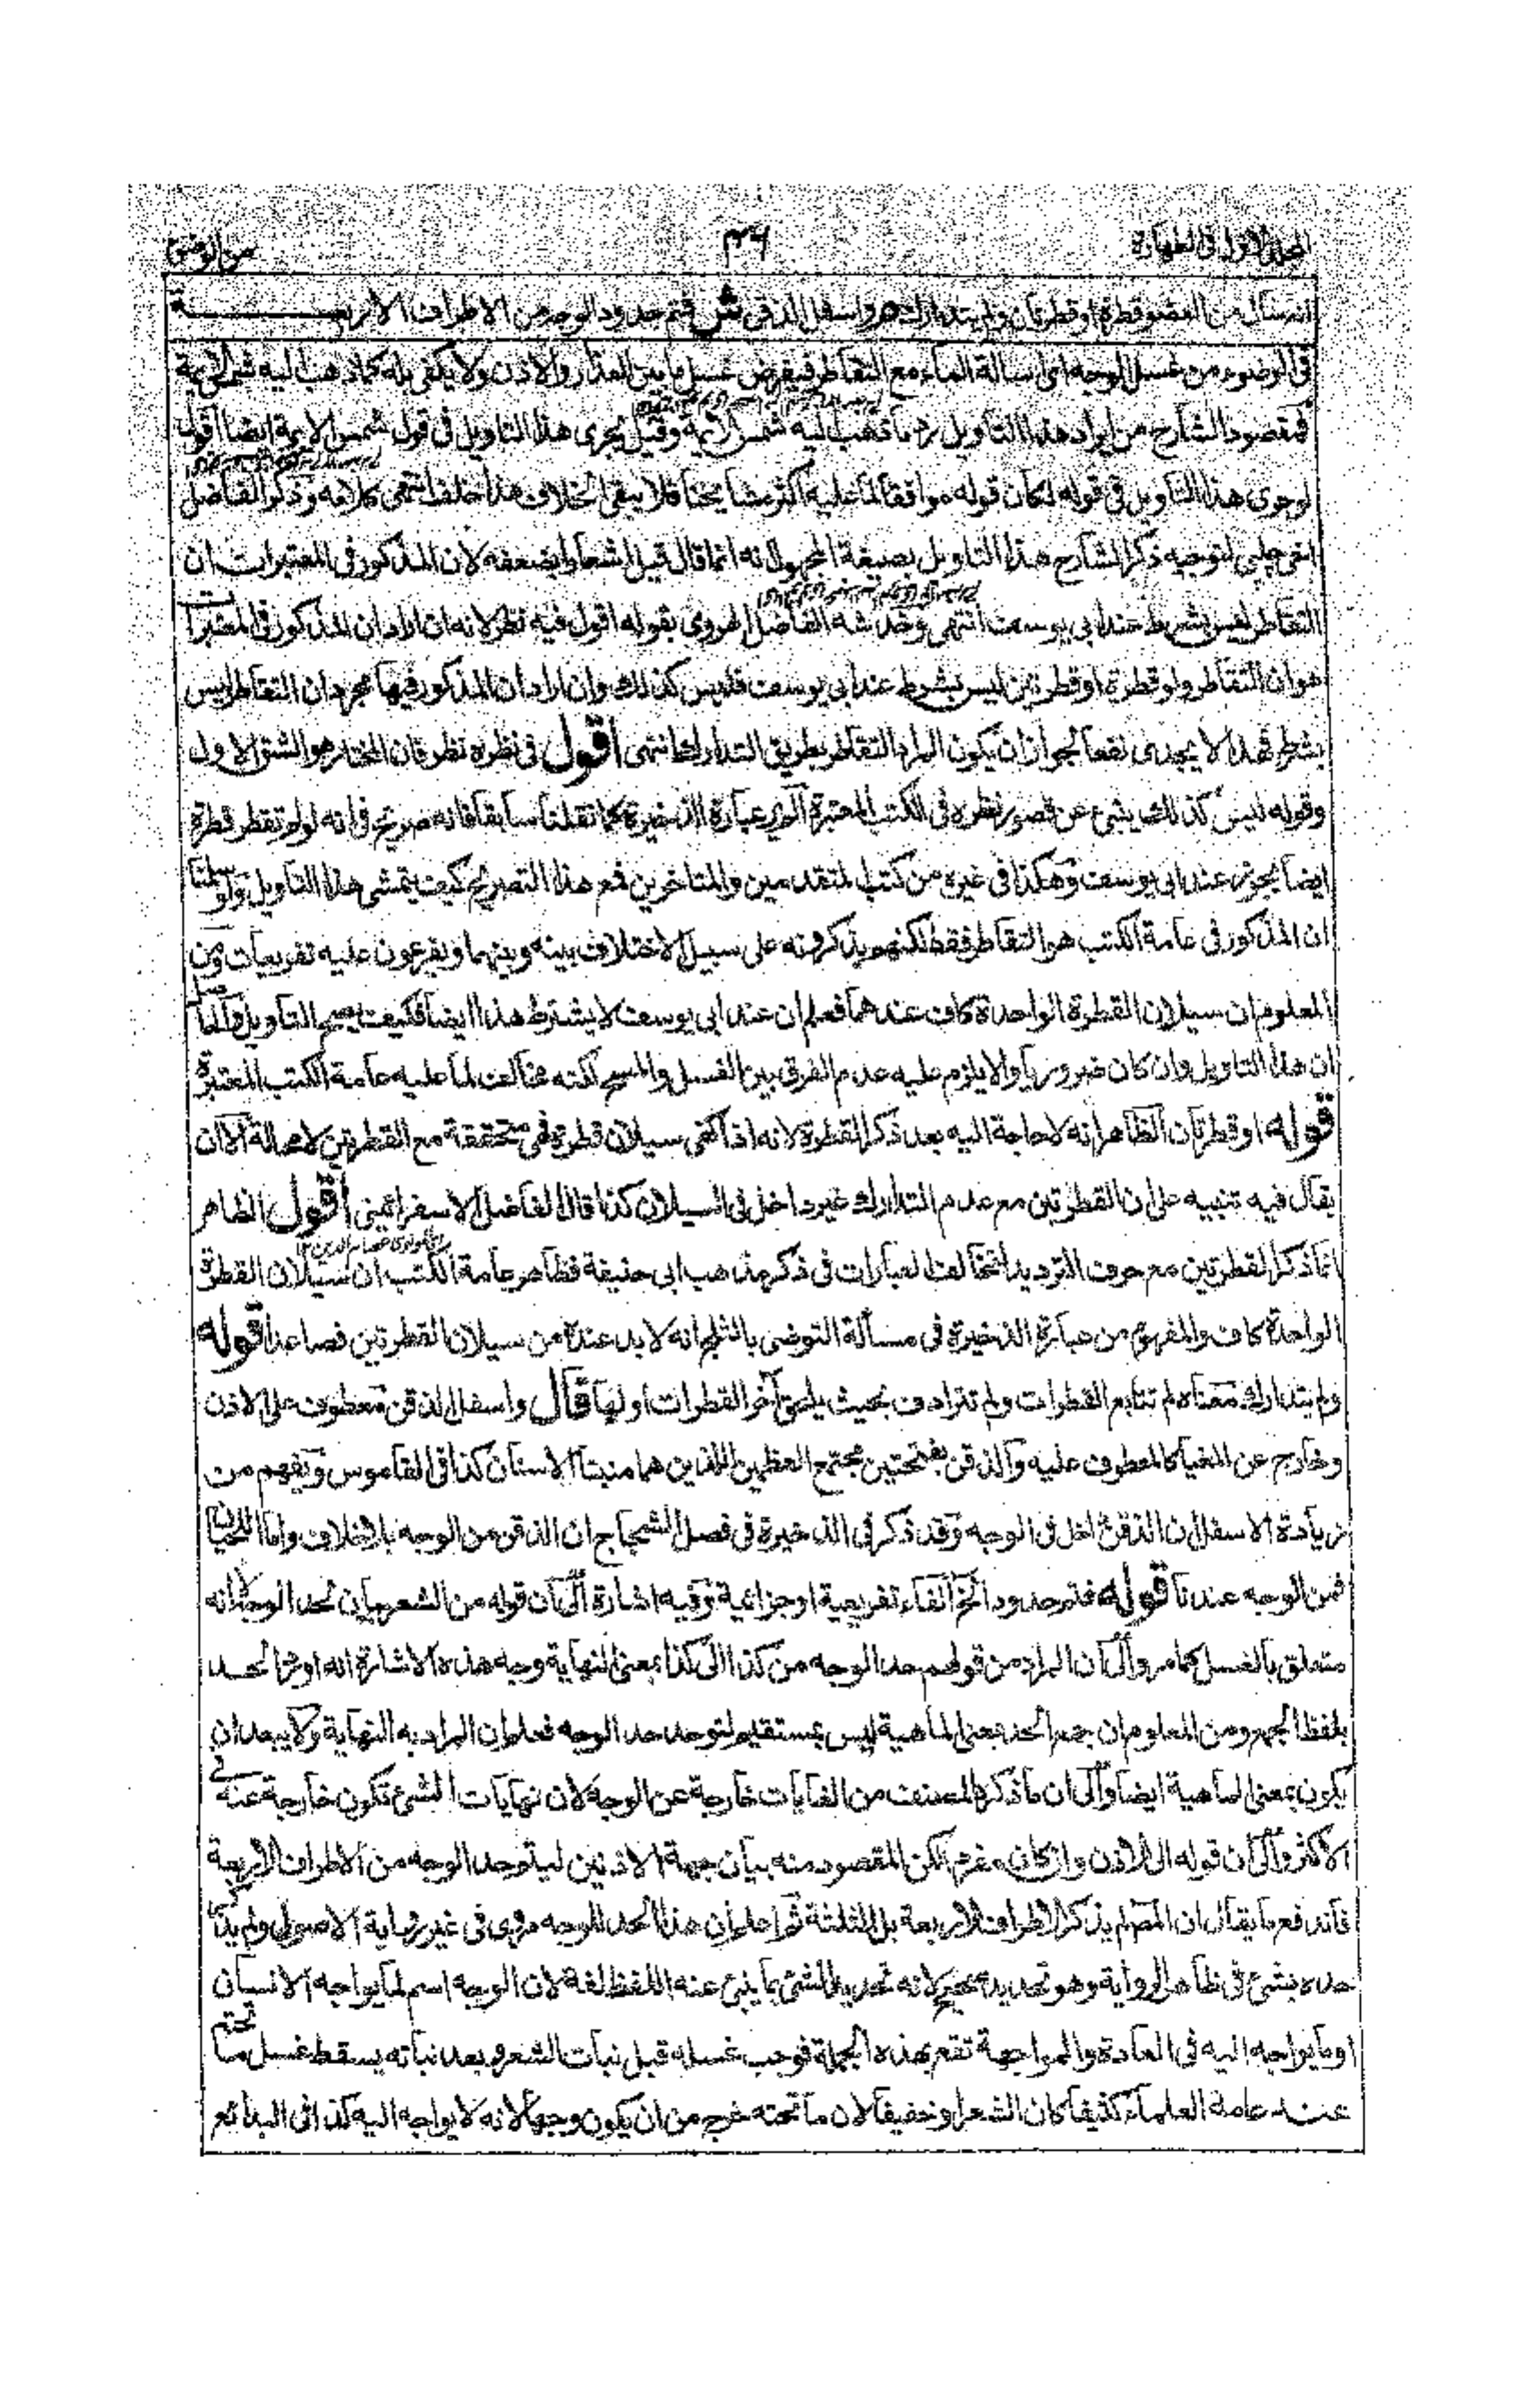 المجلد الاول فى الطهارة
۳۶
من الوضوء
انه سال من العضو قطرة او قطرتان ولم يتدارك هر واسفل الذقن ش فتم حدود الوجه من الاطراف الاربعـــة
فى الوضوء من غسل الوجه اى اسالة الماء مع التقاطر فيفرض غسل ما بين العذار والاذن ولا يكفى بله كما ذهب اليه شمس الايمة
فمقصود الشارح من ايراد هذا التاويل رد ما ذهب اليه شمس الايمة وقيل يجرى هذا التاويل فى قول شمس الايمة ايضا اقول
لو جرى هذا التاويل فى قوله لكان قوله موافقا لما عليه اكثر مشايخنا فلا يبقى الخلاف هذا خلف انتهى كلامه وذكر الفاضل
اخى چلپى لتوجيه ذكر الشارح هذا التاويل بصيغة المجهول انه انما قال قيل اشعارا بضعفه لان المذكور فى المعتبرات ان
التقاطر ليس بشرط عند ابى يوسف انتهى وخدشه الفاضل الهروى بقوله اقول فيه نظر لانه ان اراد ان المذكور فى المعتبرات
هو ان التقاطر ولو قطرة او قطرتين ليس بشرط عند ابى يوسف فليس كذلك وان اراد ان المذكور فيها مجرد ان التقاطر ليس
بشرط فهذا لا يجدى نفعا لجواز ان يكون المراد التقاطر بطريق التدارك انتهى اقول فى نظره نظر فان المختار هو الشق الاول
وقوله ليس كذلك ينبئ عن قصور نظره فى الكتب المعتبرة الم ير عبارة الذخيرة كما نقلنا سابقا فانه صريح فى انه لو لم تقطر قطرة
ايضا يجوز عند ابى يوسف وهكذا فى غيره من كتب المتقدمين والمتاخرين فمع هذا التصريح كيف يتمشى هذا التاويل ولو سلمنا
ان المذكور فى عامة الكتب هو التقاطر فقط لكنهم يذكرونه على سبيل الاختلاف بينه وبينهما ويفرعون عليه تفريعات ومن
المعلوم ان سيلان القطرة الواحدة كاف عندهما فعلم ان عند ابى يوسف لا يشترط هذا ايضا فكيف يصح التاويل والحاصل
ان هذا التاويل وان كان ضروريا والا يلزم عليه عدم الفرق بين الغسل والمسح لكنه مخالف لما عليه عامة الكتب المعتبرة
قوله او قطرتان الظاهر انه لا حاجة اليه بعد ذكر القطرة لانه اذا كفى سيلان قطرة فهى متحققة مع القطرتين لا محالة الا ان
يقال فيه تنبيه على ان القطرتين مع عدم التدارك غير داخل فى السيلان كذا قال الفاضل الاسفرائينى اقول الظاهر
انما ذكر القطرتين مع حرف الترديد لتخالف العبارات فى ذكر مذهب ابى حنيفة فظاهر عامة الكتب ان سيلان القطرة
الواحدة كاف والمفهوم من عبارة الذخيرة فى مسألة التوضى بالثلج انه لا بد عنده من سيلان القطرتين فصاعدا قوله
ولم يتدارك معناه لم تتابع القطرات ولم تترادف بحيث يلحق آخر القطرات اولها قال واسفل الذقن معطوف على الاذن
وخارج عن المغيا كالمعطوف عليه والذقن بفتحتين مجتمع العظمين اللذين هما منبتا الاسنان كذا فى القاموس وتفهم من
زيادة الاسفل ان الذقن داخل فى الوجه وقد ذكر فى الذخيرة فى فصل الشجاج ان الذقن من الوجه بلا خلاف واما اللحيان
فمن الوجه عندنا قوله فتم حدود الخ الفاء تفريعية او جزائية وفيه اشارة الى ان قوله من الشعر بيان لحد الوجه لا انه
متعلق بالغسل كما مر والى ان المراد من قولهم حد الوجه من كذا الى كذا بمعنى النهاية وجه هذه الاشارة انه اورد الحد
بلفظ الجمع ومن المعلوم ان جمع الحد بمعنى الماهية ليس بمستقيم لتوحد حد الوجه فعلم ان المراد به النهاية ولا يبعد ان
يكون بمعنى الماهية ايضا والى ان ما ذكر المصنف من الغايات خارجة عن الوجه لان نهايات الشئ تكون خارجة عنه فى
الاكثر والى ان قوله الى الاذن وان كان مفردا لكن المقصود منه بيان جهة الاذنين ليتم حد الوجه من الاطراف الاربعة
فاندفع ما يقال ان المص لم يذكر الاطراف الاربعة بل الثلثة ثم اعلم ان هذا الحد للوجه مروى فى غير رواية الاصول ولم يذكر
حده بشئ فى ظاهر الرواية وهو تحديد صحيح لانه تحديد الشئ بما ينبئ عنه اللفظ لغة لان الوجه اسم لما يواجه الانسان
او ما يواجه اليه فى العادة والمواجهة تقع بهذه الجملة فوجب غسله قبل نبات الشعر وبعد نباته يسقط غسل ما تحته
عند عامة العلماء كثيفا كان الشعر او خفيفا لان ما تحته خرج من ان يكون وجها لانه لا يواجه اليه كذا فى البدائع